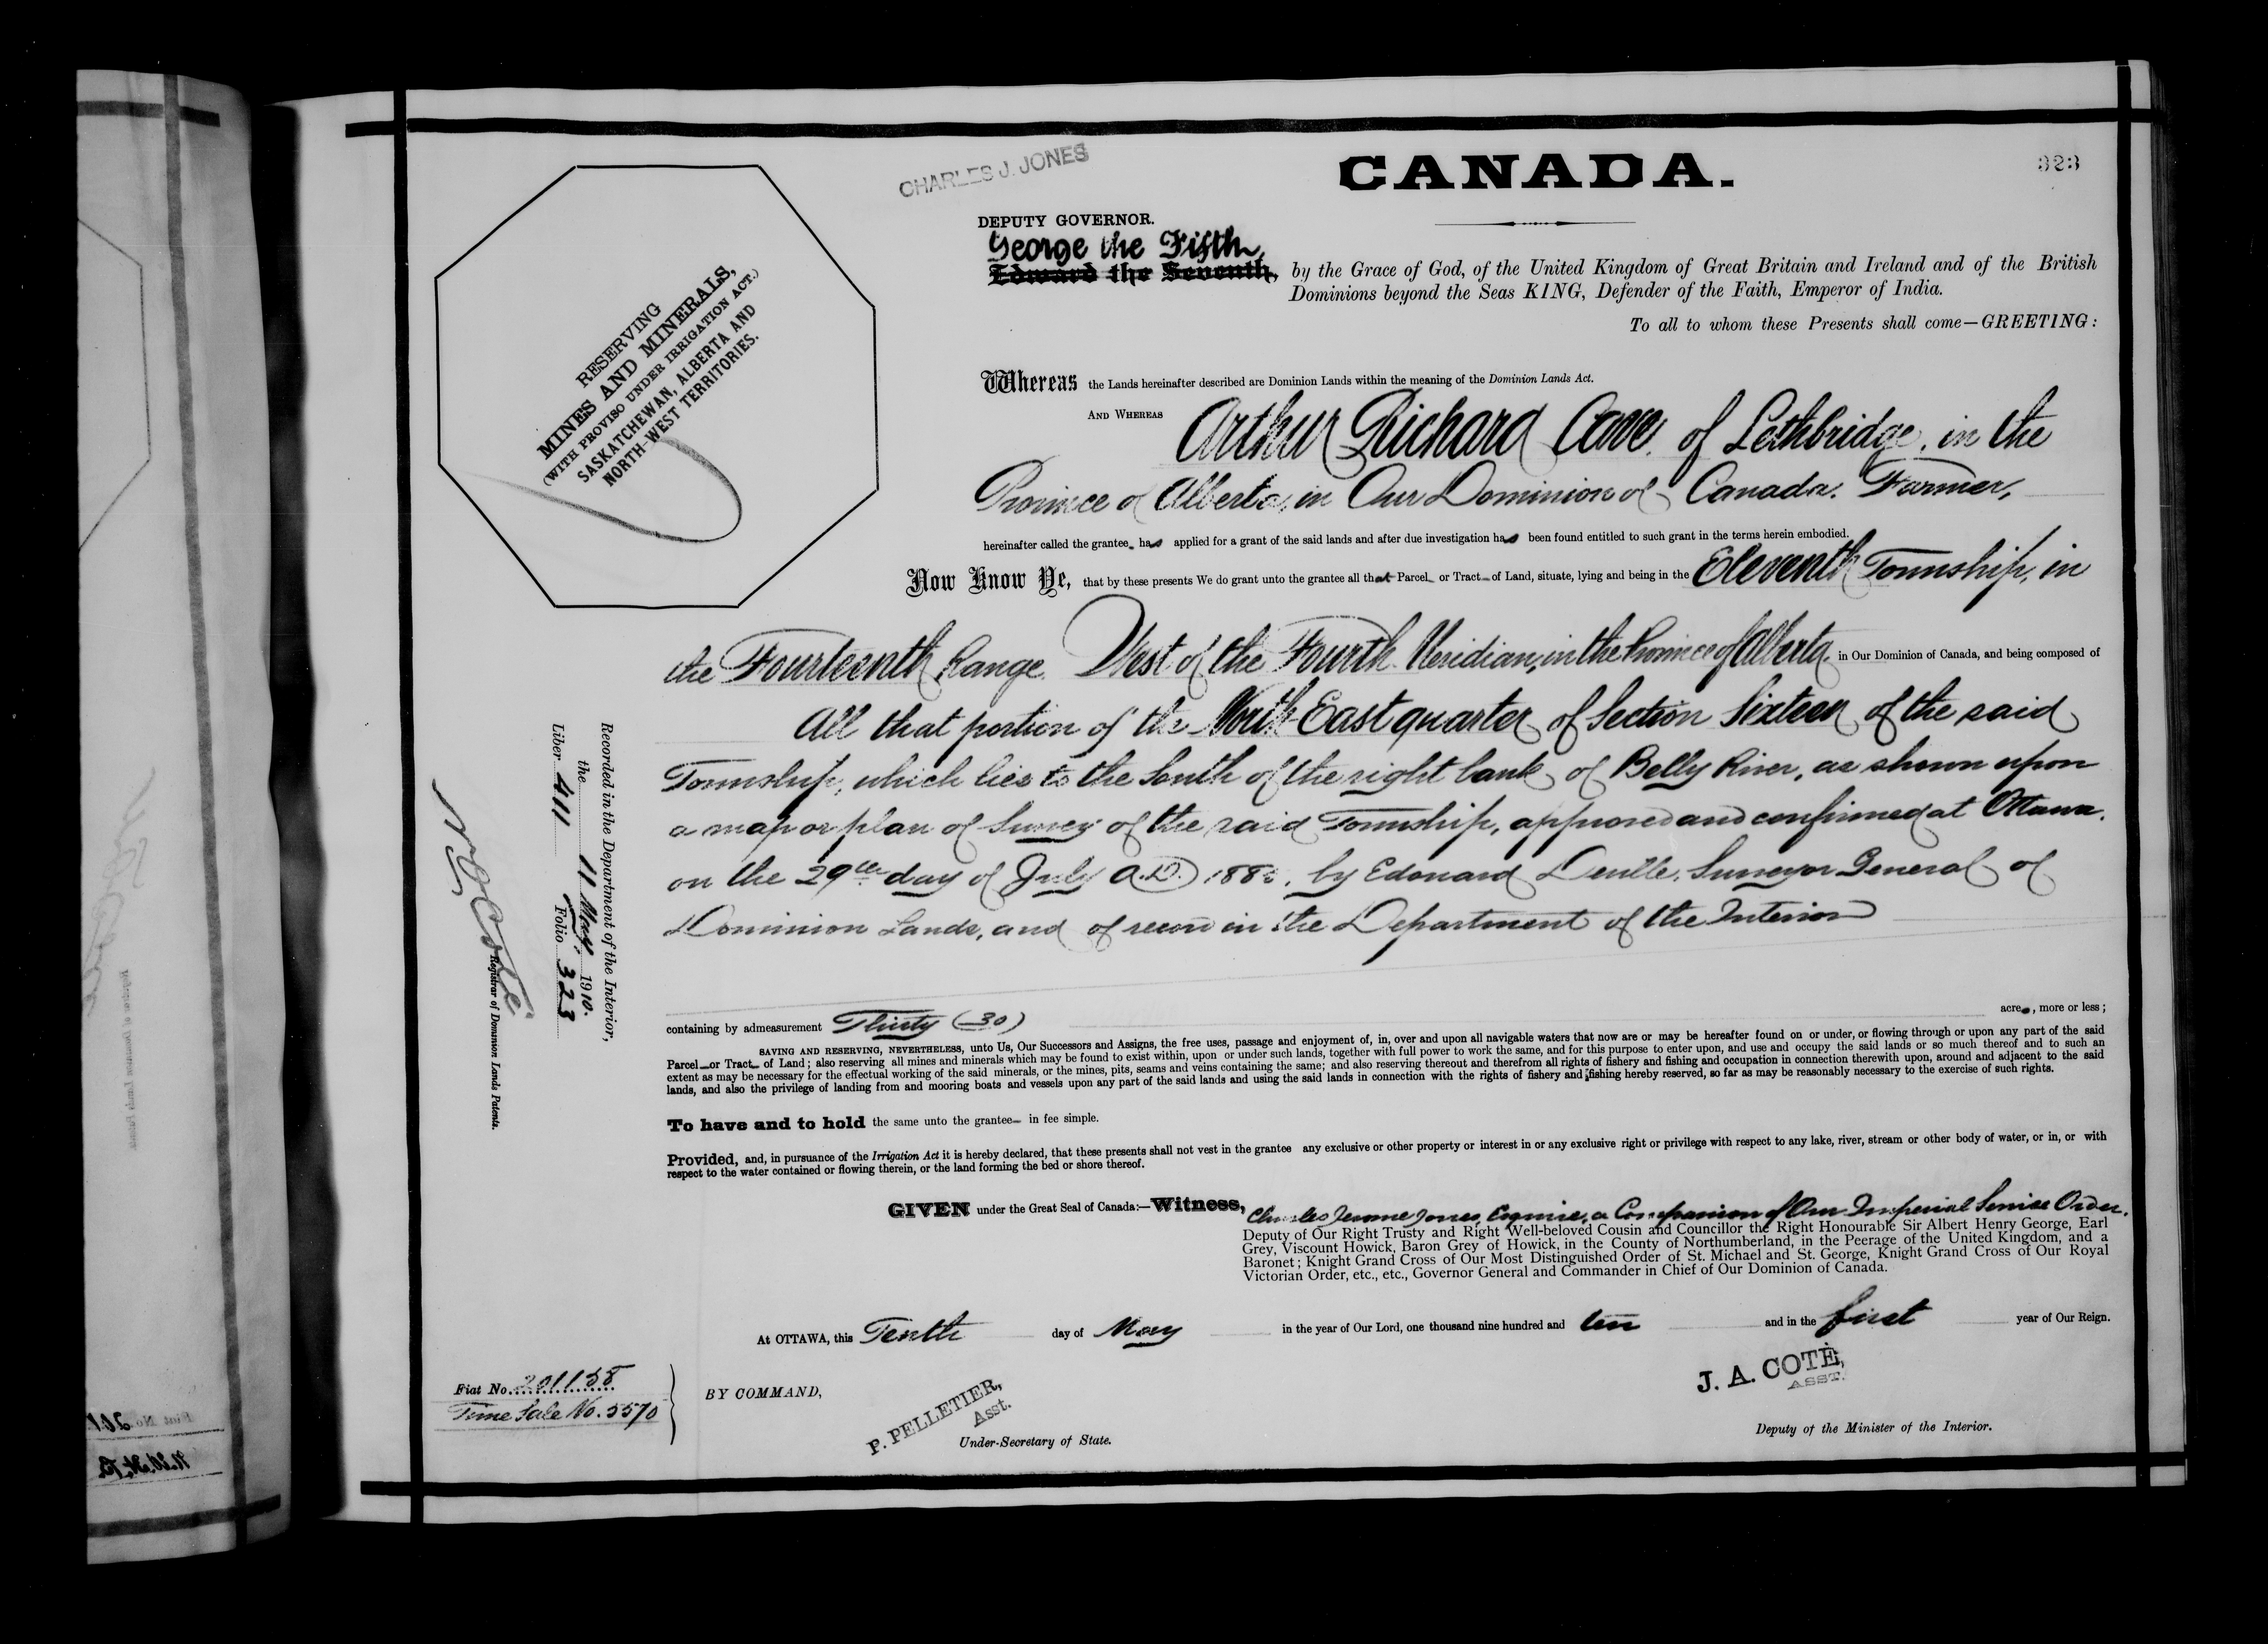 CANADA.
323
CHARLES J. JONES
DEPUTY GOVERNOR.
George the Fifth,
Edward the Seventh, by the Grace of God, of the United Kingdom of Great Britain and Ireland and of the British
Dominions beyond the Seas KING, Defender of the Faith, Emperor of India.
To all to whom these Presents shall come—GREETING:
RESERVING
MINES AND MINERALS,
(WITH PROVISO UNDER IRRIGATION ACT.)
SASKATCHEWAN, ALBERTA AND
NORTH-WEST TERRITORIES.
Whereas the Lands hereinafter described are Dominion Lands within the meaning of the Dominion Lands Act.
AND WHEREAS Arthur Richard Cave, of Lethbridge, in the
Province of Alberta, in Our Dominion of Canada, Farmer,
hereinafter called the grantee has applied for a grant of the said lands and after due investigation has been found entitled to such grant in the terms herein embodied.
Now Know Ye, that by these presents We do grant unto the grantee all that Parcel or Tract of Land, situate, lying and being in the Eleventh Township, in
the Fourteenth Range, West of the Fourth Meridian, in the Province of Alberta, in Our Dominion of Canada, and being composed of
All that portion of the North East quarter of Section Sixteen of the said
Township, which lies to the South of the right bank of Belly River, as shown upon
a map or plan of Survey of the said Township, approved and confirmed at Ottawa,
on the 29th day of July A.D. by Edouard Deville, Surveyor General of
Dominion Lands, and of record in the Department of the Interior
containing by admeasurement Thirty (30) acres, more or less;
SAVING AND RESERVING, NEVERTHELESS, unto Us, Our Successors and Assigns, the free uses, passage and enjoyment of, in, over and upon all navigable waters that now are or may be hereafter found on or under, or flowing through or upon any part of the said
Parcel or Tract of Land; also reserving all mines and minerals which may be found to exist within, upon or under such lands, together with full power to work the same, and for this purpose to enter upon, and use and occupy the said lands or so much thereof and to such an
extent as may be necessary for the effectual working of the said minerals, or the mines, pits, seams and veins containing the same; and also reserving thereout and therefrom all rights of fishery and fishing and occupation in connection therewith upon, around and adjacent to the said
lands, and also the privilege of landing from and mooring boats and vessels upon any part of the said lands and using the said lands in connection with the rights of fishery and fishing hereby reserved, so far as may be reasonably necessary to the exercise of such rights.
To have and to hold the same unto the grantee in fee simple.
Provided, and, in pursuance of the Irrigation Act it is hereby declared, that these presents shall not vest in the grantee any exclusive or other property or interest in or any exclusive right or privilege with respect to any lake, river, stream or other body of water, or in, or with
respect to the water contained or flowing therein, or the land forming the bed or shore thereof.
GIVEN under the Great Seal of Canada:—Witness, Charles Jerome Jones, Esquire, a Companion of Our Imperial Service Order,
Deputy of Our Right Trusty and Right Well-beloved Cousin and Councillor the Right Honourable Sir Albert Henry George, Earl
Grey, Viscount Howick, Baron Grey of Howick, in the County of Northumberland, in the Peerage of the United Kingdom, and a
Baronet; Knight Grand Cross of Our Most Distinguished Order of St. Michael and St. George, Knight Grand Cross of Our Royal
Victorian Order, etc., etc., Governor General and Commander in Chief of Our Dominion of Canada.
At OTTAWA, this Tenth day of May in the year of Our Lord, one thousand nine hundred and ten and in the first year of Our Reign.
BY COMMAND,
P. PELLETIER,
Asst.
Under-Secretary of State.
J. A. COTÉ,
ASST.
Deputy of the Minister of the Interior.
Fiat No. 201158
Time Sale No. 5570
Recorded in the Department of the Interior,
the 11 May, 1910.
Liber 411 Folio 323
Registrar of Dominion Lands Patents.